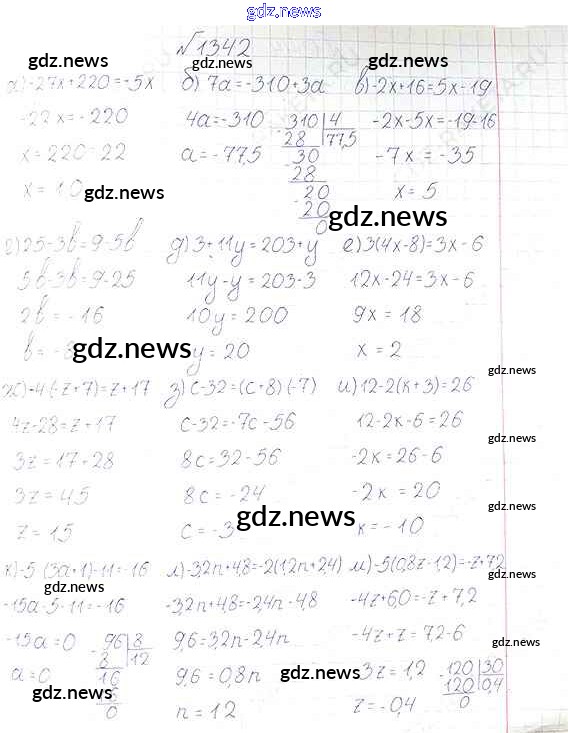 gdz.news
√1342
gdz.news gdz.news gdz.news
а) -27x+220=-5x б) 7a=-310+3a в) -2x+16=5x-19
-22x=-220 4a=-310 310 | 4 -2x-5x=-19-16
28 77,5
x=220:22 a=-77,5 30 -7x=-35
28
x=10 gdz.news 20 x=5
20 gdz.news
0
г) 25-3b=9-5b д) 3+11y=203+y е) 3(4x-8)=3x-6
5b-3b=9-25 11y-y=203-3 12x-24=3x-6
2b=-16 10y=200 9x=18
b=-8 gdz.news y=20 x=2
gdz.news
ж) -4·(-z+7)=z+17 з) c-32=(c+8)·(-7) и) 12-2(k+3)=26
4z-28=z+17 c-32=-7c-56 12-2k-6=26
gdz.news
3z=17+28 8c=32-56 -2k=26-6
3z=45 8c=-24 -2k=20
gdz.news
z=15 c=-3 gdz.news k=-10
к) -5·(3a+1)-11=-16 л) -3,2n+4,8=-2(1,2n+2,4) м) -5(0,8z-1,2)=-z+7,2
gdz.news gdz.news
-15a-5-11=-16 -3,2n+4,8=-2,4n-4,8 -4z+6,0=-z+7,2
-15a=0 96 | 8 9,6=3,2n-2,4n -4z+z=7,2-6
gdz.news
8 12
a=0 16 9,6=0,8n gdz.news 3z=1,2 120 | 30
gdz.news 120 0,4
0 n=12 z=-0,4 0
gdz.news